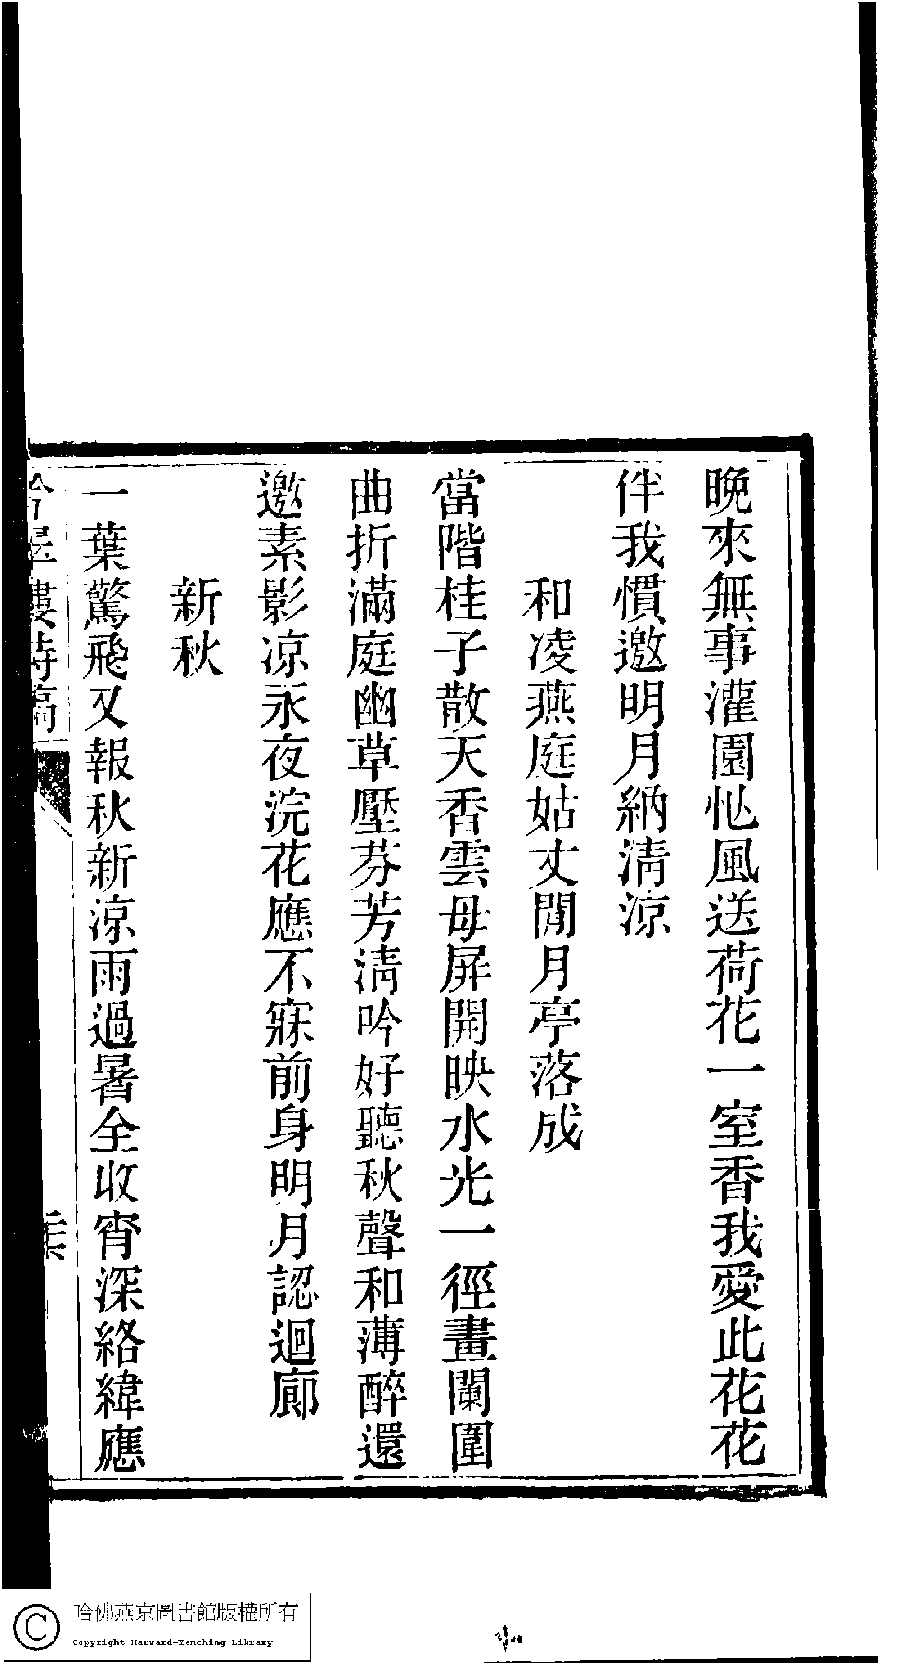 晚來無事灌園忙風送荷花一室香我愛此花花
伴我慣邀明月納清涼
和凌燕庭姑丈閒月亭落成
當階桂子散天香雲母屏開映水光一徑畫闌圍
曲折滿庭幽草壓芬芳淸吟好聽秋聲和薄醉還
邀素影凉永夜浣花應不寐前身明月認迴廊
新秋
一葉驚飛又報秋新涼雨過暑全收宵深絡緯應
樓詩稿
哈佛燕京圖書館版權所有
Copyright Harvard-Yenching Library